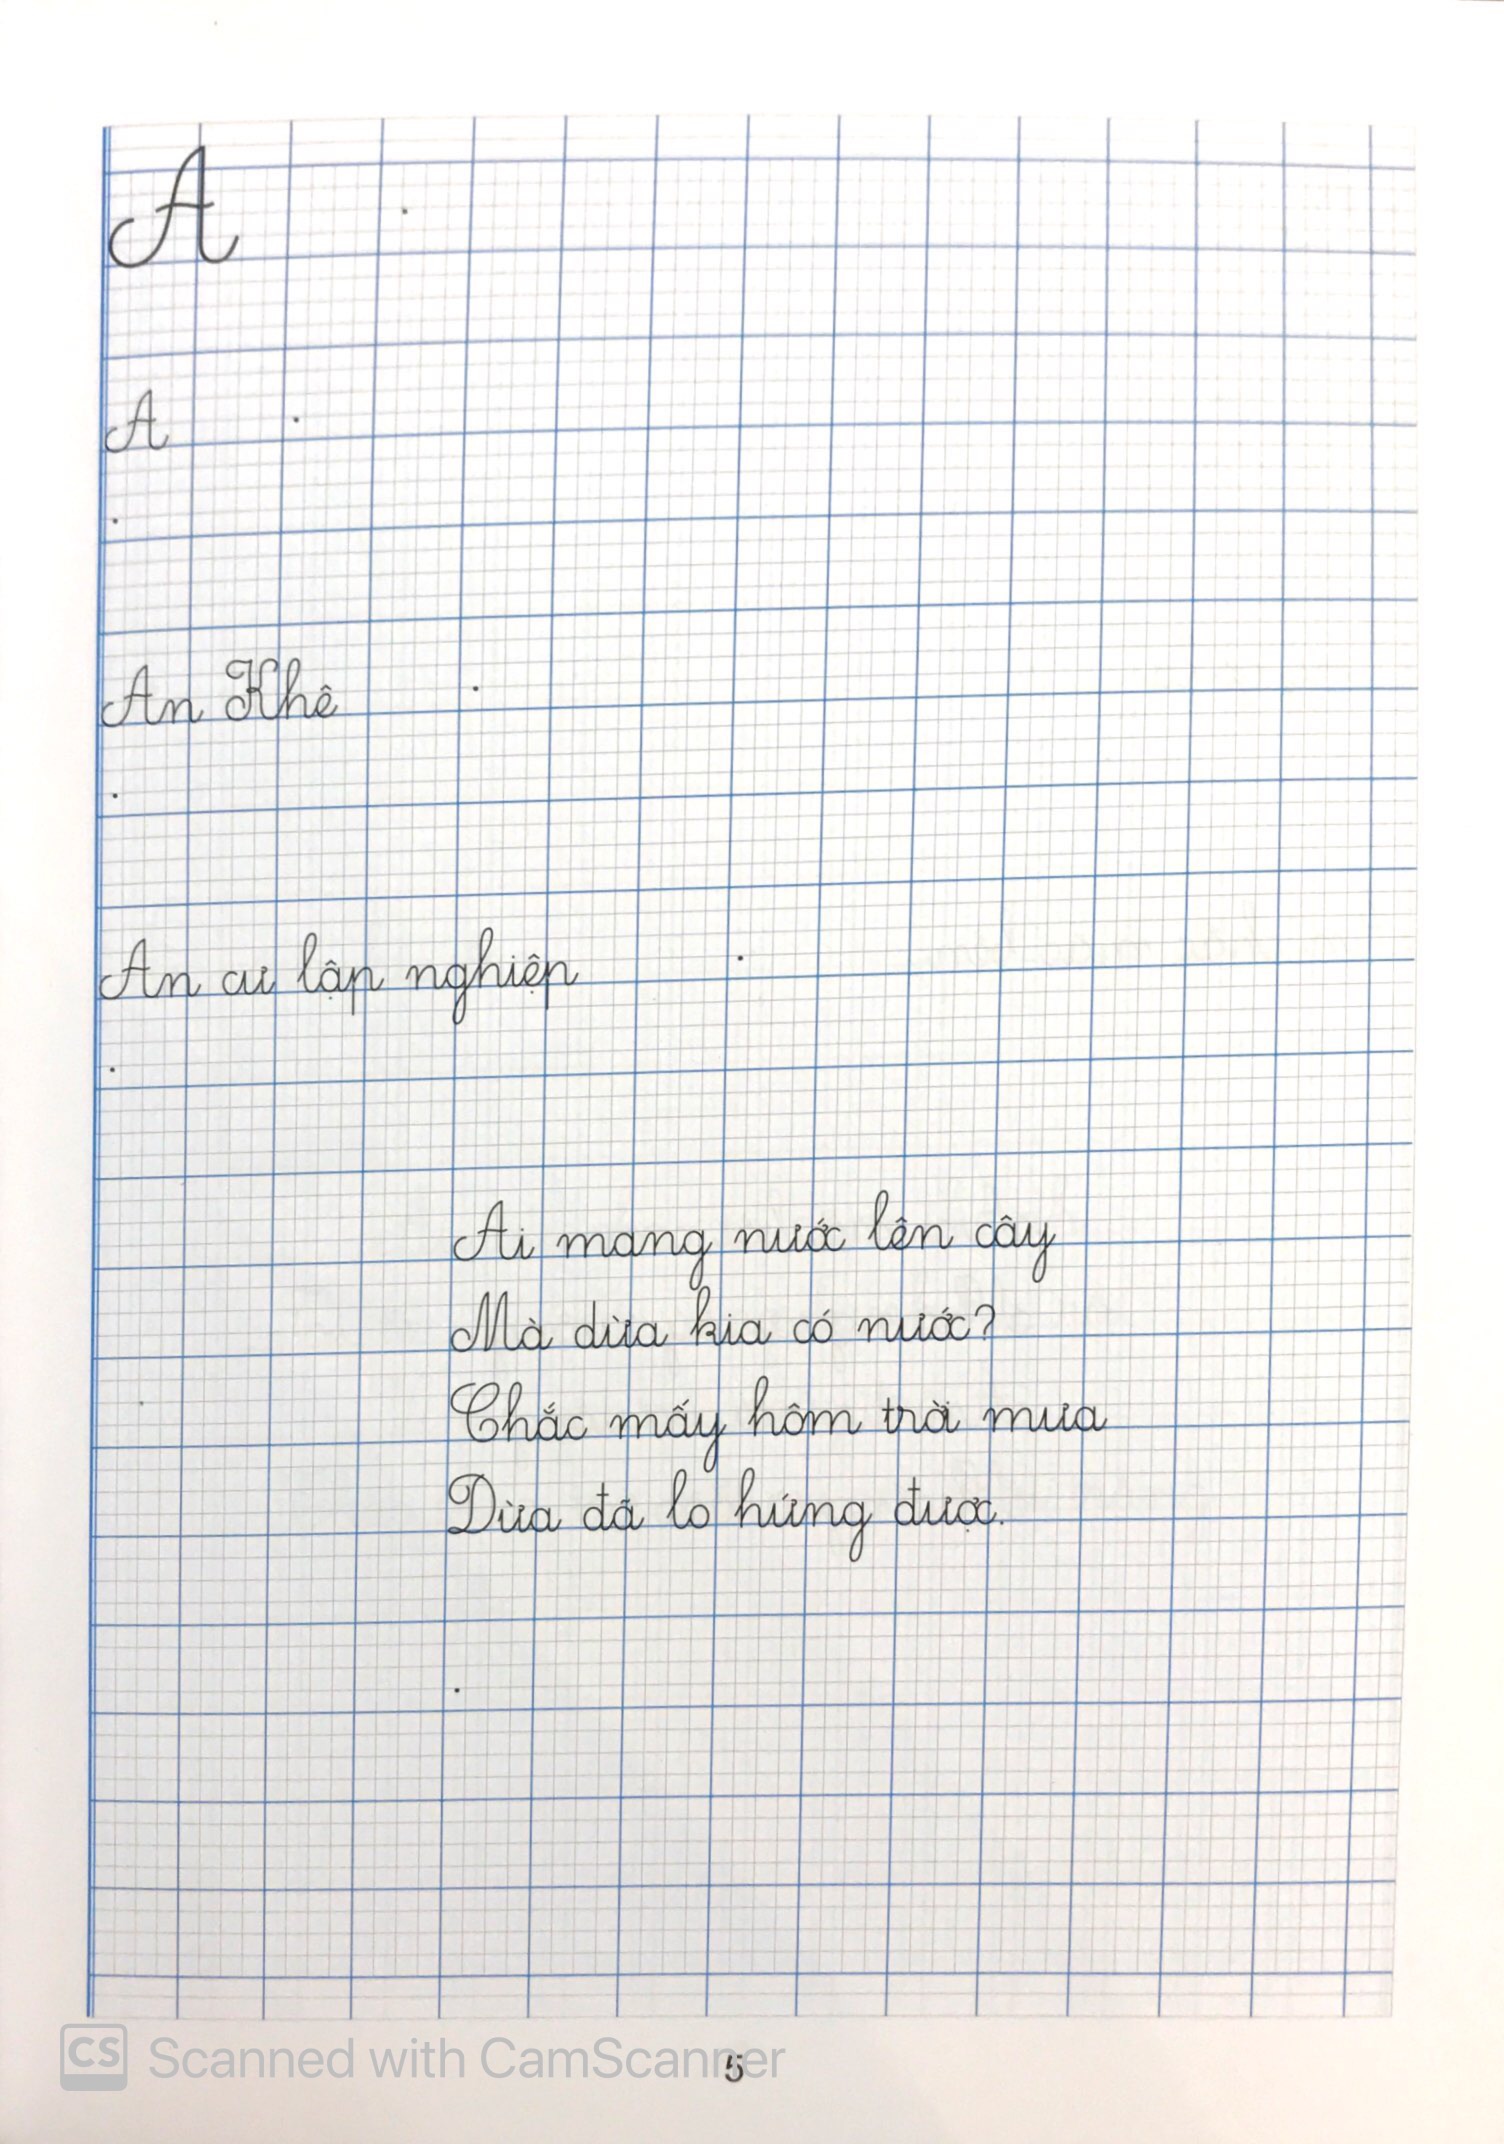 A
A
An Khê
An cư lập nghiệp
Ai mang nước lên cây
Mà dừa kia có nước?
Chắc mấy hôm trời mưa
Dừa đã lo hứng được.
CS Scanned with CamScanner
5